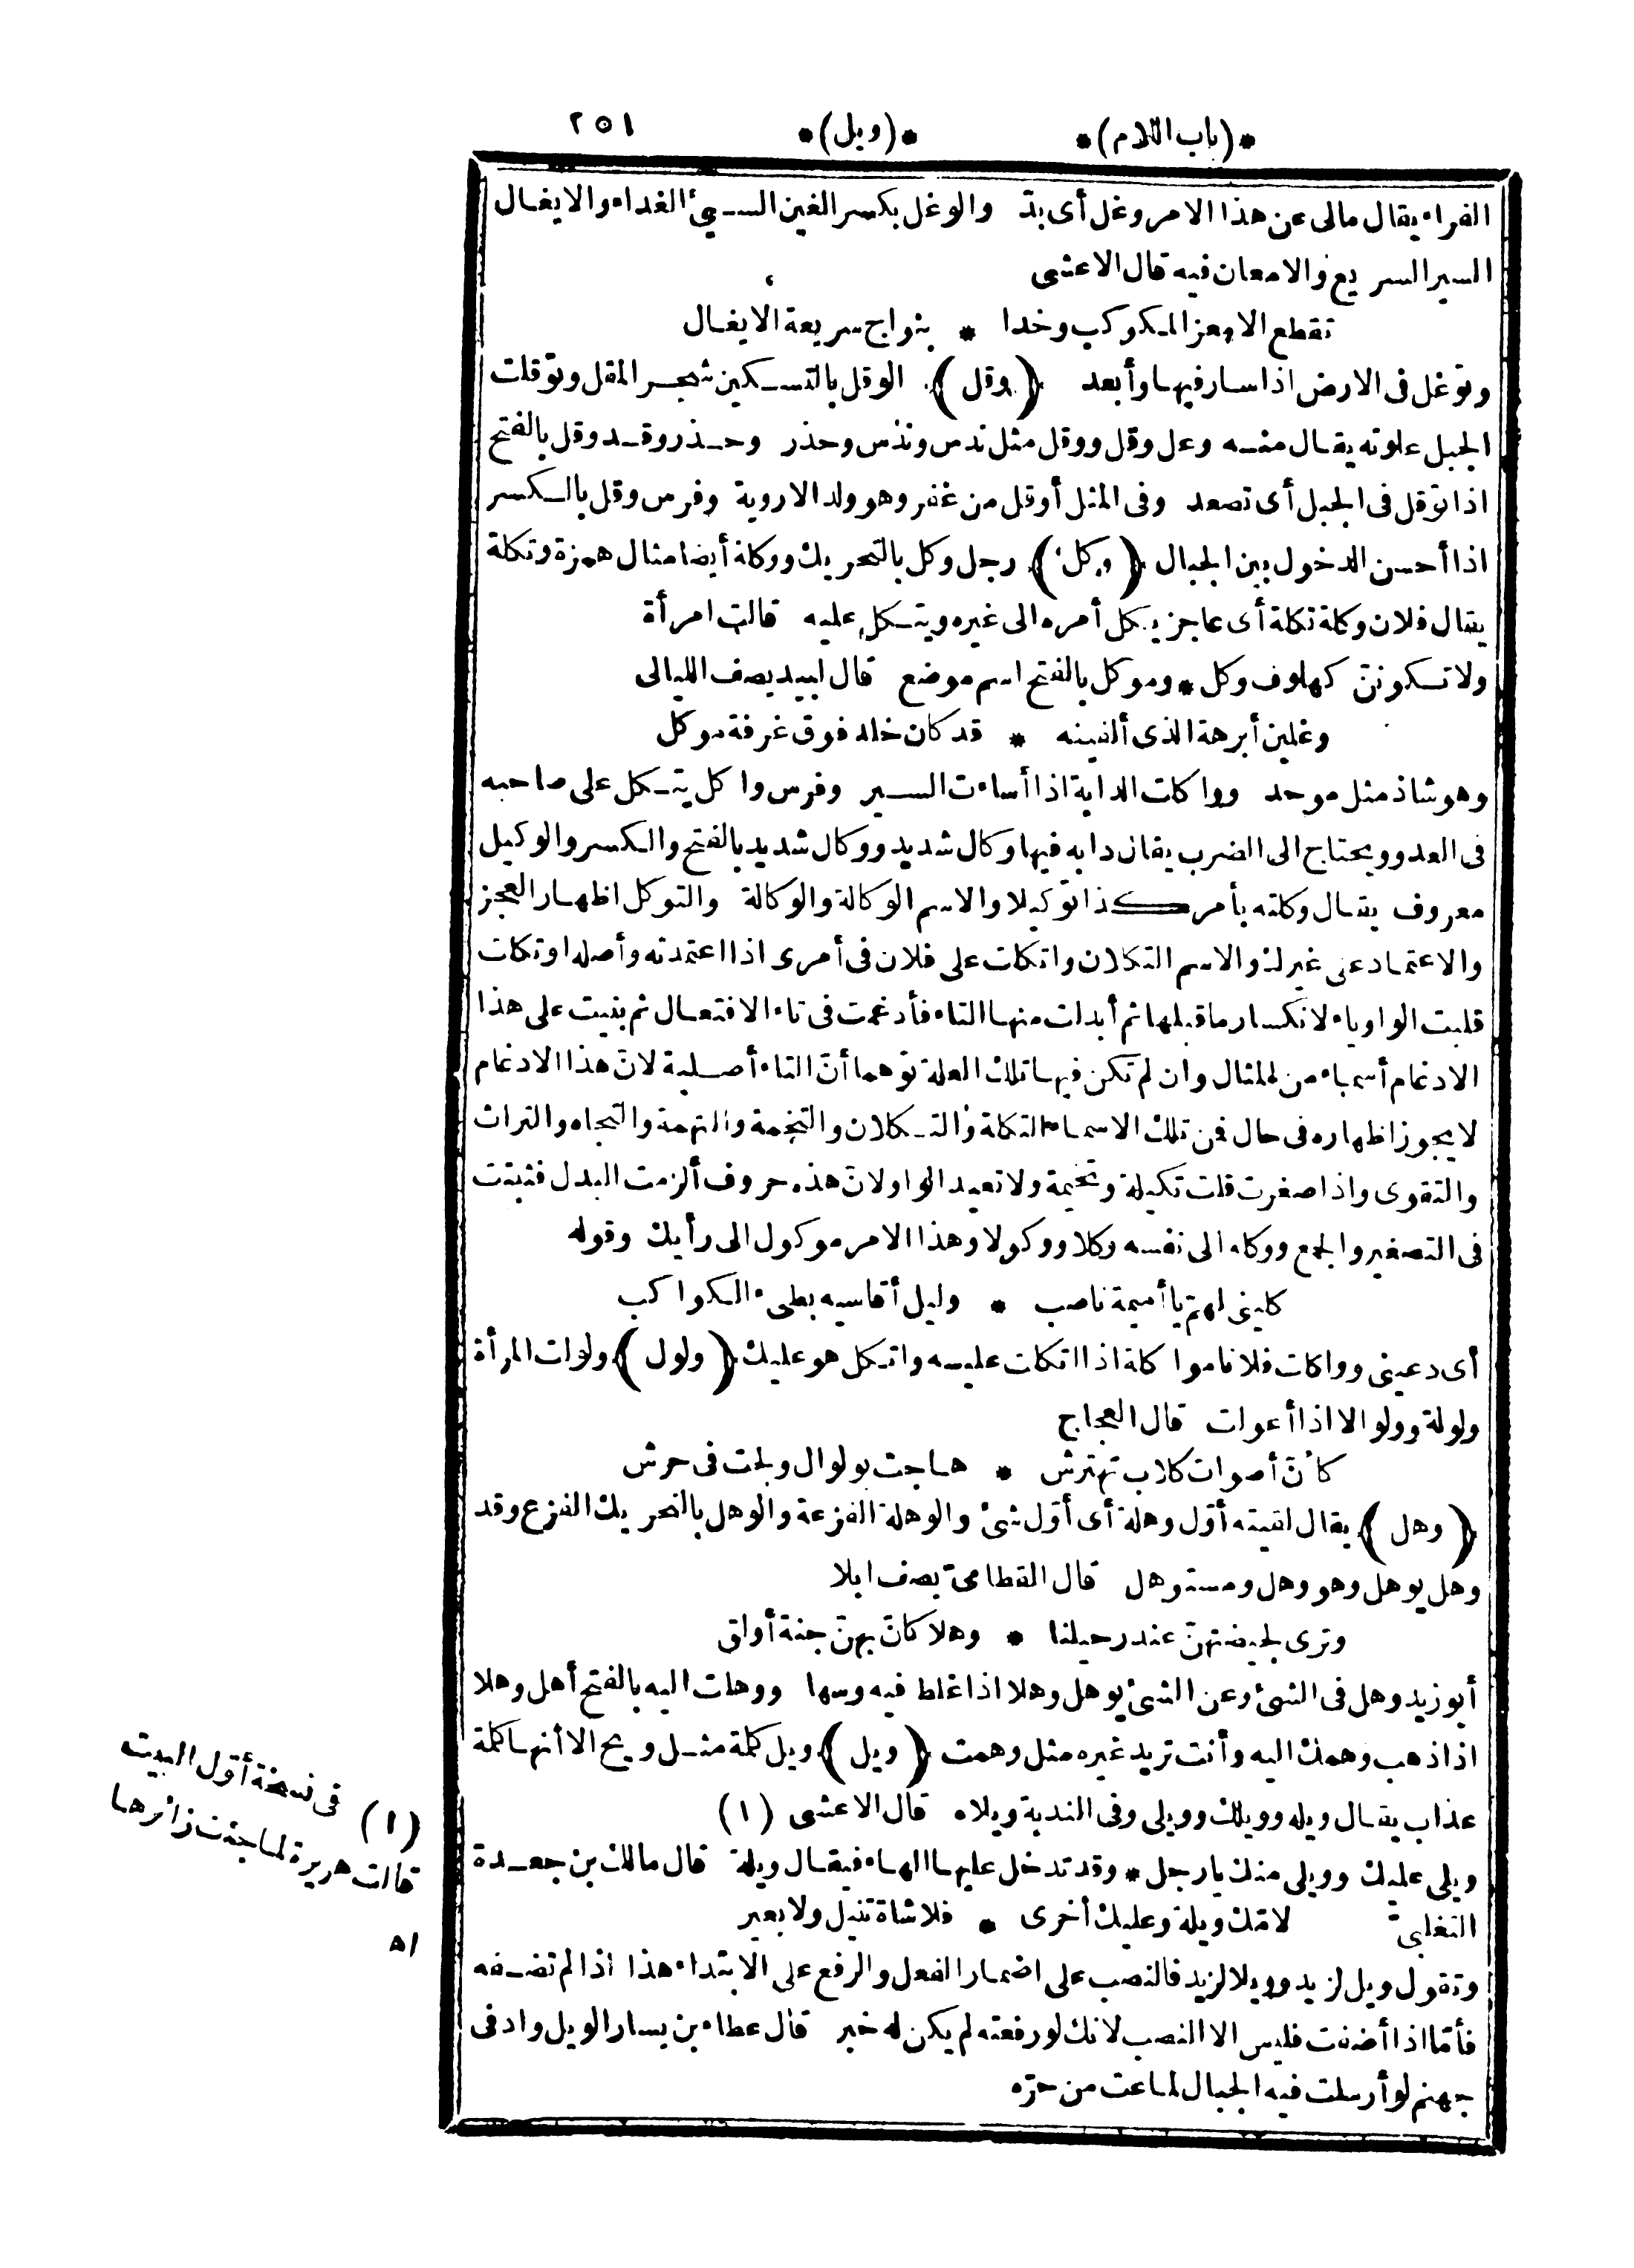 *(باب اللام)* *(ويل)* ٢٥١
الفراء يقال مالى عن هذا الامر وغل أى بدّ والوغل بكسر الغين السيئ الغداء والايغال
السير السريع والامعان فيه قال الاعشى
تقطع الامعز المكوكب وخدا * بنواج سريعة الايغال
وتوغل فى الارض اذا سار فيها وأبعد (وقل) الوقل بالتسكين شجر المقل وتوّقلت
الجبل علوته يقال منه وعل وقل ووقل مثل ندس وندس وحذر وحذر وقد وقل بالفتح
اذا توّقل فى الجبل أى تصعد وفى المثل أوقل من غفر وهو ولد الاروية وفرس وقل بالكسر
اذا أحسن الدخول بين الجبال (وكل) رجل وكل بالتحريك ووكلة أيضا مثال همزة وتكلة
يقال فلان وكلة تكلة أى عاجز يكل أمره الى غيره ويتكل عليه قالت امرأة
ولا تكوننّ كهلوف وكل * وموكل بالفتح اسم موضع قال لبيد يصف الليالى
وغلبن أبرهة الذى ألفينه * قد كان خلد فوق غرفة موكل
وهو شاذ مثل موحد وواكلت الدابة اذا أساءت السير وفرس واكل يتكل على صاحبه
فى العدو ويحتاج الى الضرب يقال دابة فيها وكال شديد ووكال شديد بالفتح والكسر والوكيل
معروف يقال وكلته بأمر كذا توكيلا والاسم الوكالة والوكالة والتوكل اظهار العجز
والاعتماد على غيرك والاسم التكلان واتكلت على فلان فى أمرى اذا اعتمدته وأصله اوتكلت
قلبت الواو ياء لانكسار ما قبلها ثم أبدلت منها التاء فأدغمت فى تاء الافتعال ثم بنيت على هذا
الادغام أسماء من المثال وان لم تكن فيها تلك العلة توهما أنّ التاء أصلية لانّ هذا الادغام
لا يجوز اظهاره فى حال فمن تلك الاسماء التكلة والتكلان والتخمة والتهمة والتجاه والتراث
والتقوى واذا صغرت قلت تكيلة وتخيمة ولا تعيد الواو لانّ هذه حروف ألزمت البدل فثبتت
فى التصغير والجمع ووكله الى نفسه وكلا ووكولا وهذا الامر موكول الى رأيك وقوله
كلينى لهمّ يا أميمة ناصب * وليل أقاسيه بطىء الكواكب
أى دعينى وواكلت فلانا مواكلة اذا اتكلت عليه واتكل هو عليك (ولول) ولولت المرأة
ولولة وولوالا اذا أعولت قال العجاج
كأنّ أصوات كلاب تهترش * هاجت بولوال ولجت فى حرش
(وهل) يقال لقيته أوّل وهلة أى أوّل شئ والوهلة الفزعة والوهل بالتحريك الفزع وقد
وهل يوهل وهو وهل ومستوهل قال القطامىّ يصف ابلا
وترى لجيضتهنّ عند رحيلنا * وهلا كانّ بهنّ جنة أولق
أبو زيد وهل فى الشئ وعن الشئ يوهل وهلا اذا غلط فيه وسها ووهلت اليه بالفتح أهل وهلا
اذا ذهب وهمك اليه وأنت تريد غيره مثل وهمت (ويل) ويل كلمة مثل ويح الا أنها كلمة
عذاب يقال ويله وويلك وويلى وفى الندبة ويلاه قال الاعشى (١)
ويلى عليك وويلى منك يا رجل * وقد تدخل عليها الهاء فيقال ويلة قال مالك بن جعدة
التغلبىّ لامّك ويلة وعليك أخرى * فلا شاة تنيل ولا بعير
وتقول ويل لزيد وويلا لزيد فالنصب على اضمار الفعل والرفع على الابتداء هذا اذا لم تضفه
فأمّا اذا أضفت فليس الا النصب لانك لو رفعته لم يكن له خبر قال عطاء بن يسار الويل واد فى
جهنم لو أرسلت فيه الجبال لماعت من حرّه
(١) فى نسخة أوّل البيت
قالت هريرة لما جئت زائرها
اه